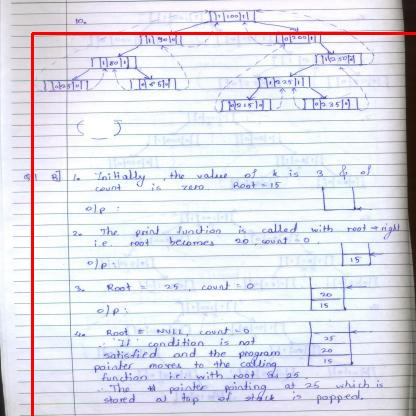 10.
1 100 1
1 90 0
0 200 1
1 80 1
1 250 0
0 25 0
0 85 0
1 225 1
0 215 0
0 235 0
B] 1. Initially, the value of k is 3 & of
count is zero Root = 15
o/p :
2. The print function is called with root → right
i.e. root becomes 20, count = 0.
o/p :
15
3. Root = 25, count = 0
o/p :
20
15
4. Root = NULL, count = 0
∴ 'If' condition is not
satisfied and the program
pointer moves to the calling
function i.e. with root as 25
∴ The pointer pointing at 25 which is
stored at top of stack is popped.
25
20
15